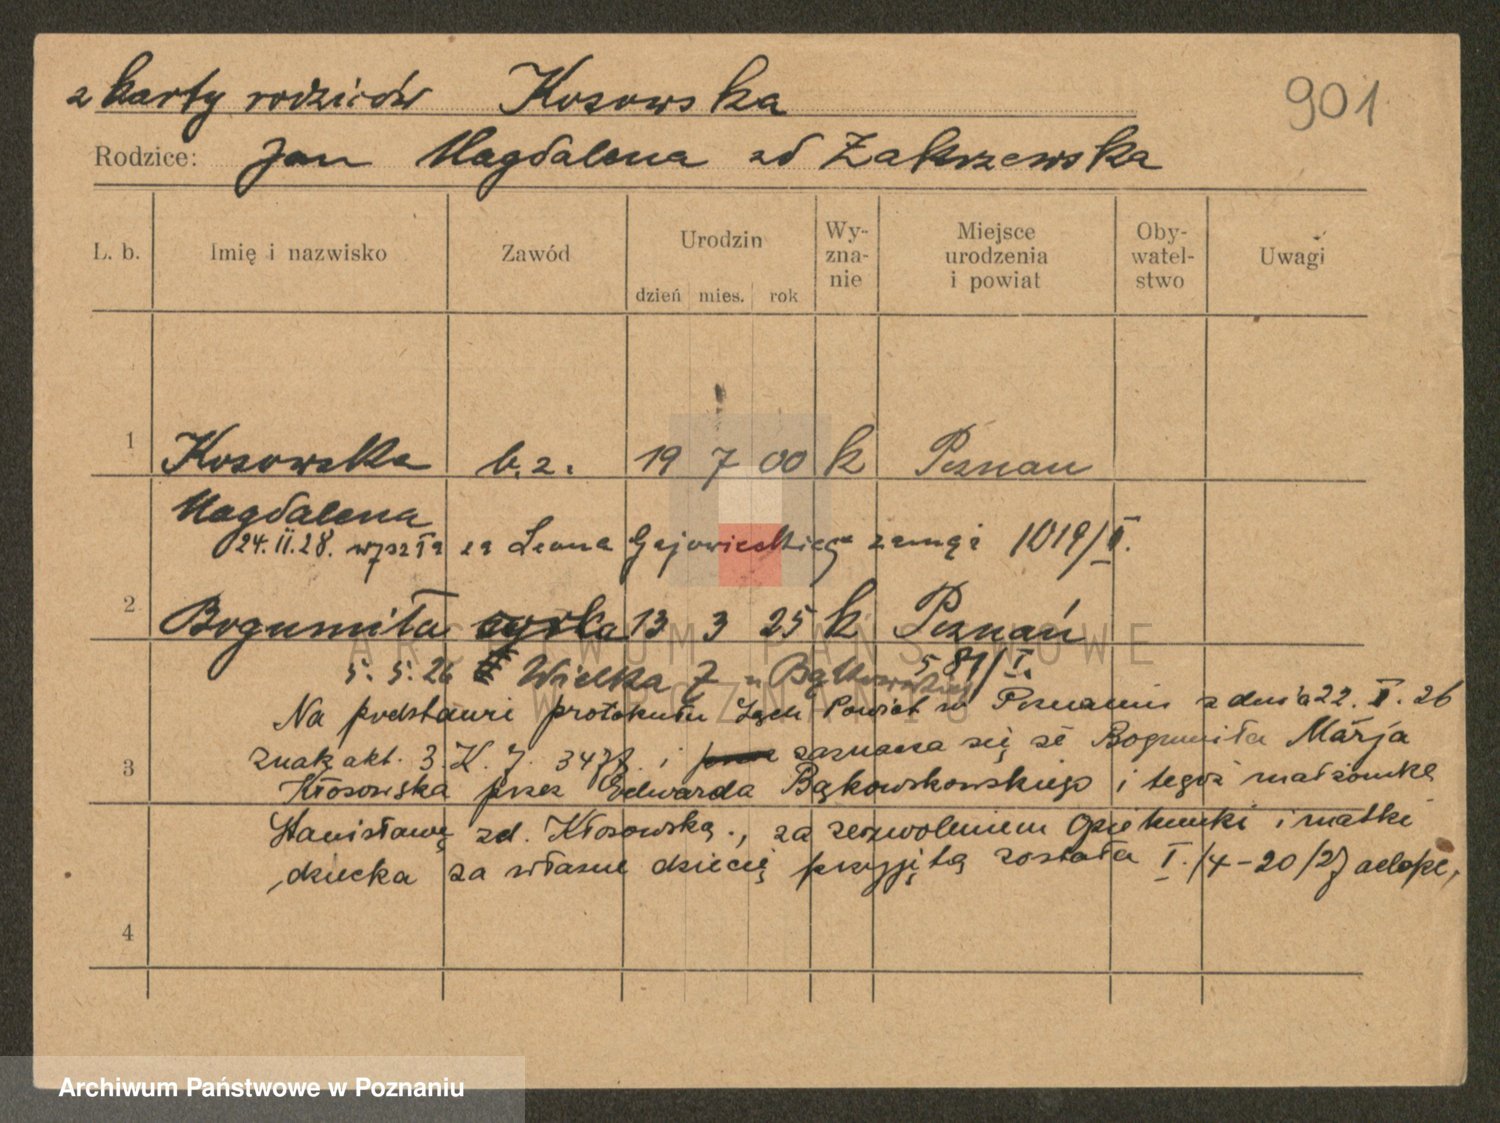 z karty rodziców Kosowska
901
Rodzice: Jan Magdalena zd Zakrzewska
L. b. Imię i nazwisko Zawód Urodzin Wy-zna-nie Miejsce urodzenia i powiat Oby-watel-stwo Uwagi
dzień mies. rok
1 Kosowska b. z. 19 7 00 k Poznan
Magdalena
24. II. 28. wyszła za Leona zamąż 1019/II.
2 Bogumiła córka 13 3 25 k Poznań
5. 5. 26 Wielka 7 u 581/I.
Na podstawie protokułu Sądu Powiat w Poznaniu z dnia 22. 26
znak akt. 3. K. J. i zaznacza się że Bogumiła Marja
3 Kłosowska przez Edwarda Bąkowskowskiego i tegoż małżonkę
Stanisławę zd. Kłosowską., za zezwoleniem opiekunki i matki
dziecka za własne dziecię przyjętą została I. /4-20/27 adopc,
4
ARCHIWUM PAŃSTWOWE
W POZNANIU
Archiwum Państwowe w Poznaniu